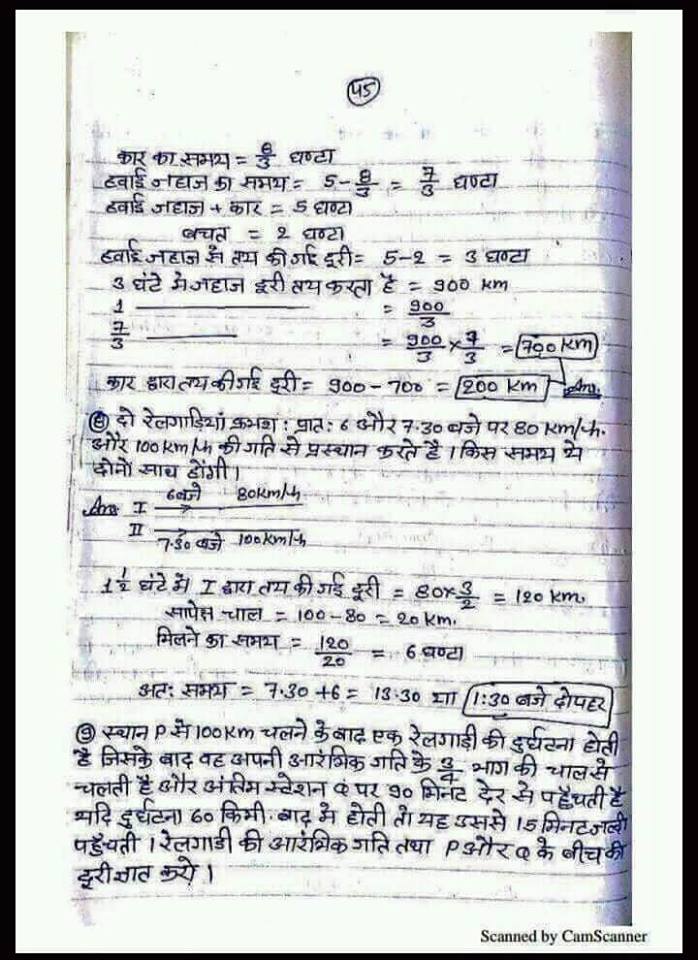 45
कार का समय = 8/3 घण्टा
हवाई जहाज का समय = 5 - 8/3 = 7/3 घण्टा
हवाई जहाज + कार = 5 घण्टा
बचत = 2 घण्टा
हवाई जहाज से तय की गई दूरी = 5-2 = 3 घण्टा
3 घंटे में जहाज दूरी तय करता है = 900 km
1 ——— = 900/3
7/3 ——— = 900/3 × 7/3 = 700 km
कार द्वारा तय की गई दूरी = 900 - 700 = 200 km Ans.
⑧ दो रेलगाड़ियां क्रमश: प्रात: 6 और 7.30 बजे पर 80 km/h.
और 100 km/h की गति से प्रस्थान करते है । किस समय ये
दोनो साथ होंगी ।
Ans I 6 बजे 80km/h
II 7.30 बजे 100 km/h
1 1/2 घंटे में I द्वारा तय की गई दूरी = 80 × 3/2 = 120 km.
सापेक्ष चाल = 100 - 80 = 20 km.
मिलने का समय = 120/20 = 6 घण्टा
अत: समय = 7.30 + 6 = 13.30 या 1:30 बजे दोपहर
⑨ स्थान P से 100 Km चलने के बाद एक रेलगाडी की दुर्घटना होती
है जिसके बाद वह अपनी आरंभिक गति के 3/4 भाग की चाल से
चलती है और अंतिम स्टेशन Q पर 90 मिनट देर से पहुँचती है
यदि दुर्घटना 60 किमी. बाद में होती तो यह उससे 15 मिनट जल्दी
पहुँचती । रेलगाडी की आरंभिक गति तथा P और Q के बीच की
दूरी ज्ञात करो ।
Scanned by CamScanner